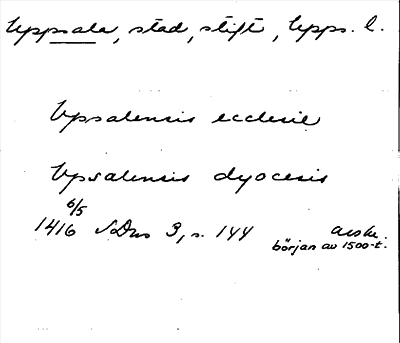 Uppsala, stad, stift, Upps. l.
Upsalensis ecclesie
Upsalensis dyocesis
6/5
1416 SDns 3, s. 144 avskr.
början av 1500-t.